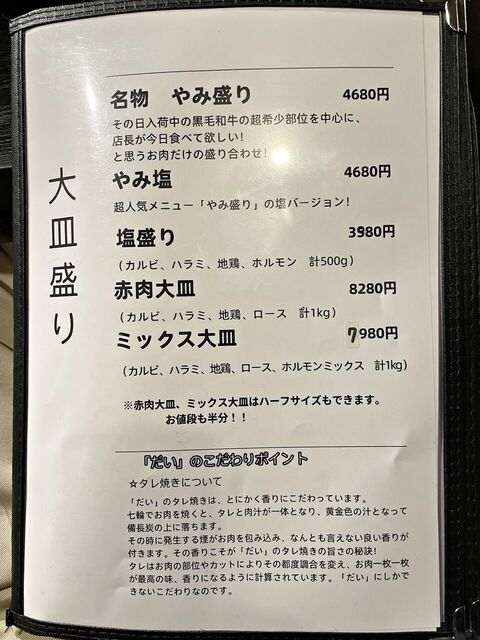 大皿盛り
名物　やみ盛り　4680円
その日入荷中の黒毛和牛の超希少部位を中心に、
店長が今日食べて欲しい!
と思うお肉だけの盛り合わせ!
やみ塩　4680円
超人気メニュー「やみ盛り」の塩バージョン!
塩盛り　3980円
（カルビ、ハラミ、地鶏、ホルモン　計500g）
赤肉大皿　8280円
（カルビ、ハラミ、地鶏、ロース　計1kg）
ミックス大皿　7980円
（カルビ、ハラミ、地鶏、ロース、ホルモンミックス　計1kg）
※赤肉大皿、ミックス大皿はハーフサイズもできます。
お値段も半分！！
「だい」のこだわりポイント
☆タレ焼きについて
「だい」のタレ焼きは、とにかく香りにこだわっています。
七輪でお肉を焼くと、タレと肉汁が一体となり、黄金色の汁となって
備長炭の上に落ちます。
その時に発生する煙がお肉を包み込み、なんとも言えない良い香りが
付きます。その香りこそが「だい」のタレ焼きの旨さの秘訣!
タレはお肉の部位やカットによりその都度調合を変え、お肉一枚一枚
が最高の味、香りになるように計算されています。「だい」にしかで
きないこだわりなのです。